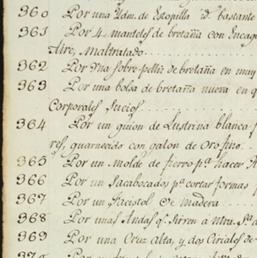 360 Por una Vdm. de Estopilla d. bastante
361 Por 4. manteles de bretaña con Encag
Aire, Maltratado
362 Por Vna sobre-pelliz de bretaña en muy
363 Por una bolsa de bretaña nueva en q
Corporales Sucios
364 Por un guion de Lustrina blanca
res, guarnecido con galon de Oro fino
365 Por un Molde de fierro pa. hacer
366 Por un Sacabocados pa. cortar formas
367 Por un Facistol de madera
368 Por unas Andas q. Sirven a Ntra. Sra.
369 Por una Cruz alta, y dos Ciriales de
370